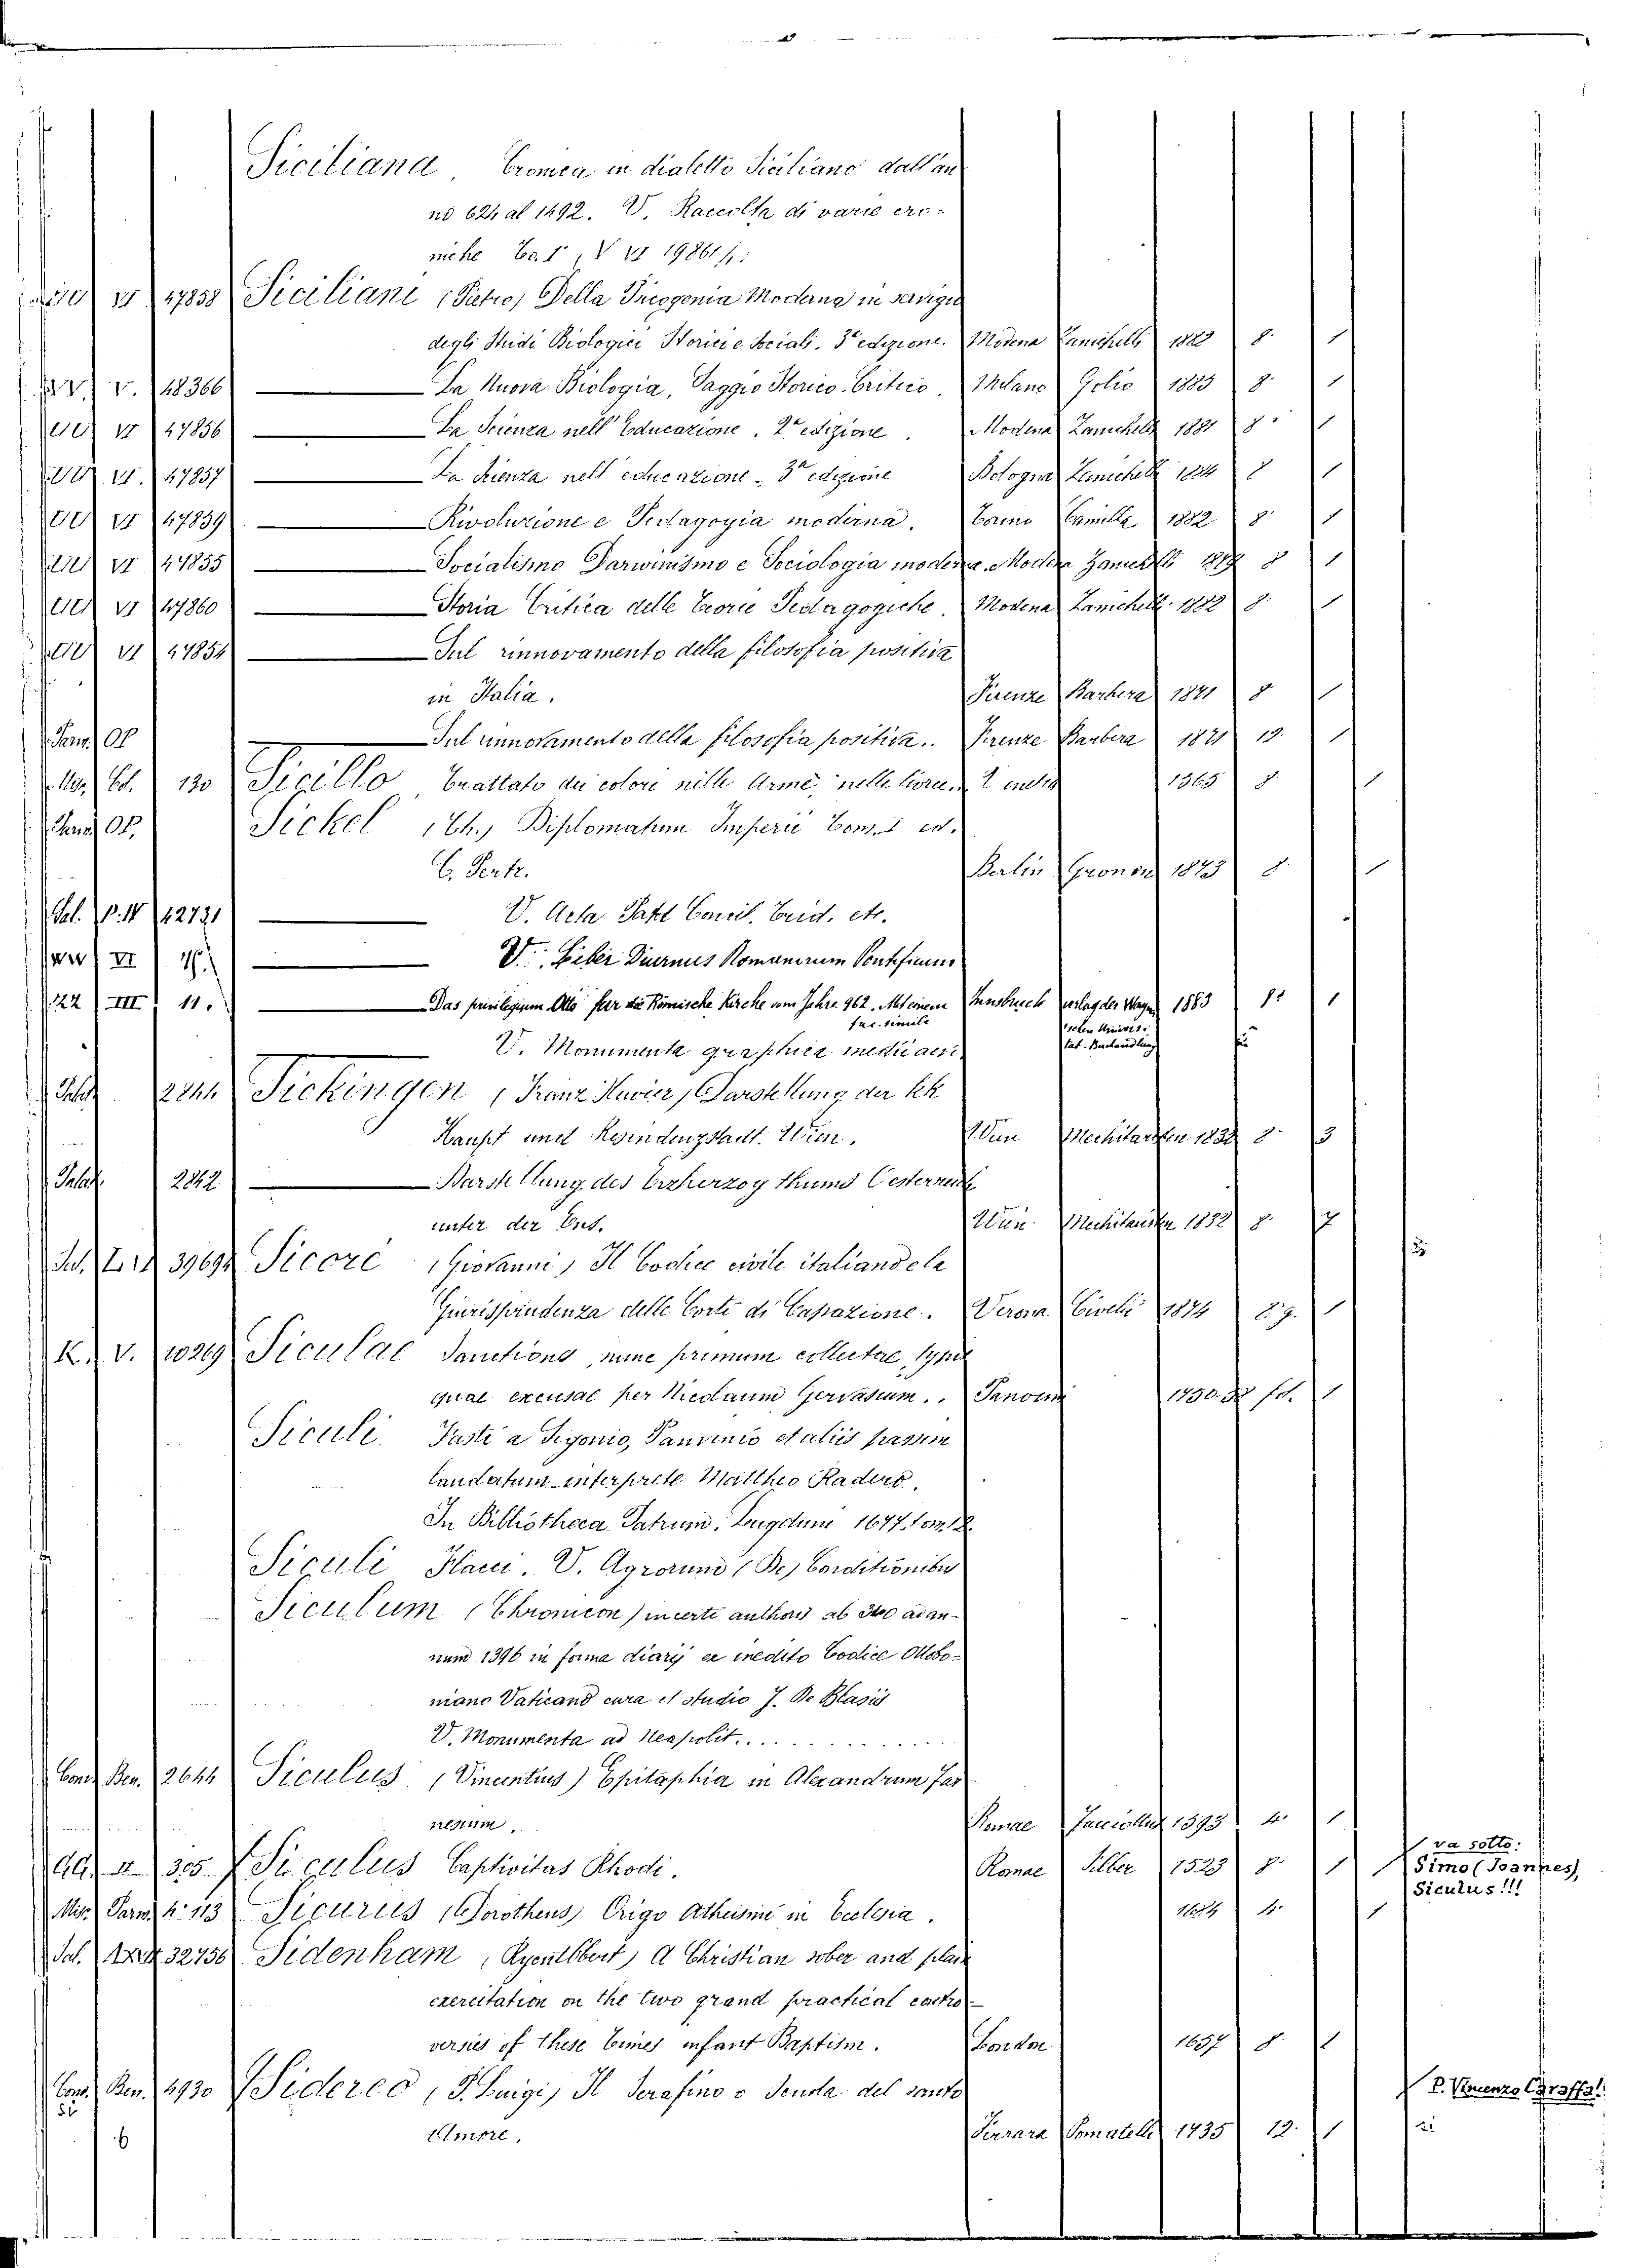 Siciliana, Cronica in dialetto Siciliano dall'an-
no 624 al 1492. V. Raccolta di varie cro-
niche Co. 1, V VI 19861/1
VI 47858 Siciliani (Pietro) Della Psicogenia Moderna in servigio
degli Studi Biologici Storici e Sociali. 3ª edizione. Modena Zanichelli 1882 8. 1
V. 48366 La Nuova Biologia, Saggio Storico-Critico. Milano Golio 1885 8. 1
VI 47856 La Scienza nell'Educazione. 2ª edizione. Modena Zanichelli 1881 8. 1
VI. 47857 La Scienza nell'educazione. 3ª edizione Bologna Zanichelli 1884 8 1
VI 47859 Rivoluzione e Pedagogia moderna. Torino Camilla 1882 8 1
VI 47855 Socialismo Darwinismo e Sociologia moderna. Modena Zanichelli 1879 8 1
VI 47860 Storia Critica delle Teorie Pedagogiche. Modena Zanichelli 1882 8. 1
VI 47854 Sul rinnovamento della filosofia positiva
in Italia. Firenze Barbera 1871 8 1
Parm. OP Sul rinnovamento della filosofia positiva.. Firenze Barbera 1871 12. 1
130 Sicillo, Trattato dei colori nelle Arme, nelle livree, 1565 8 1
OP. Sickel (Th.) Diplomatum Imperii Tom. I ed.
C. Pertz. Berlin 1873 8. 1
Sal. P. IV 42721 V. Acta Concil. Trid. etc.
VI V. Liber Diurnus Romanorum Pontificum
22 III 11. Das privilegium Otto für die Römische Kirche vom Jahre 962. Mit einem Innsbruck verlag der Wagner 1883 8: 1
fac. simile schen Univers.
V. Monumenta graphica medii aevi. tät-Buchandlung
Sickingen (Franz Xavier) Darstellung der kk
Haupt und Residenzstadt. Wien. Wien Mechitaristen 1832 8. 3
Palat. 2242 Darstellung des Erzherzogthums Oesterreich
unter der Ens. Wien. Mechitaristen 1832 8. 7
39694 Sicorè (Giovanni) Il Codice civile italiano e la
Giurisprudenza delle Corti di Cassazione. Verona Civelli 1874 8.g. 1
K. V. 10269 Siculae Sanctiones, nunc primum collectae, typis
quae excusae per Nicolaum Gervasium.. Panormi fol. 1
Siculi. Fasti a Sigonio, Panvinio et aliis passim
laudatum interprete Mattheo Radero.
In Bibliotheca Patrum. Lugduni 1677. tom. 12.
Siculi Flacci. V. Agrorum (De) Conditionibus
Siculum (Chronicon) incerti authoris ab 340 ad an-
num 1396 in forma diarij ex inedito Codice Ottobo-
niano Vaticano cura et studio J. De Blasiis
V. Monumenta ad Neapolit. . . .
Cons. Ben. 2644 Siculus (Vincentius) Epitaphia in Alexandrum Far-
nesium. Romae 1593 4. 1
305. Siculus Captivitas Rhodi. Romae Silber 1523 8. 1 va sotto:
Simo (Joannes),
Siculus!!!
Misc. Parm. 4: 113 Sicurus (Dorotheus) Origo Atheismi in Ecclesia. 1684 4. 1
Sal. 32756 Sidenham, A Christian sober and plain
exercitation on the two grand practical contro-
versies of these times infant Baptism. London 1657 8. 1
Cons. Ben. 4930 Sidereo (P. Luigi) Il Serafino o Scuola del santo P. Vincenzo Caraffa!
6 Amore. Ferrara Pomatelli 1735 12. 1